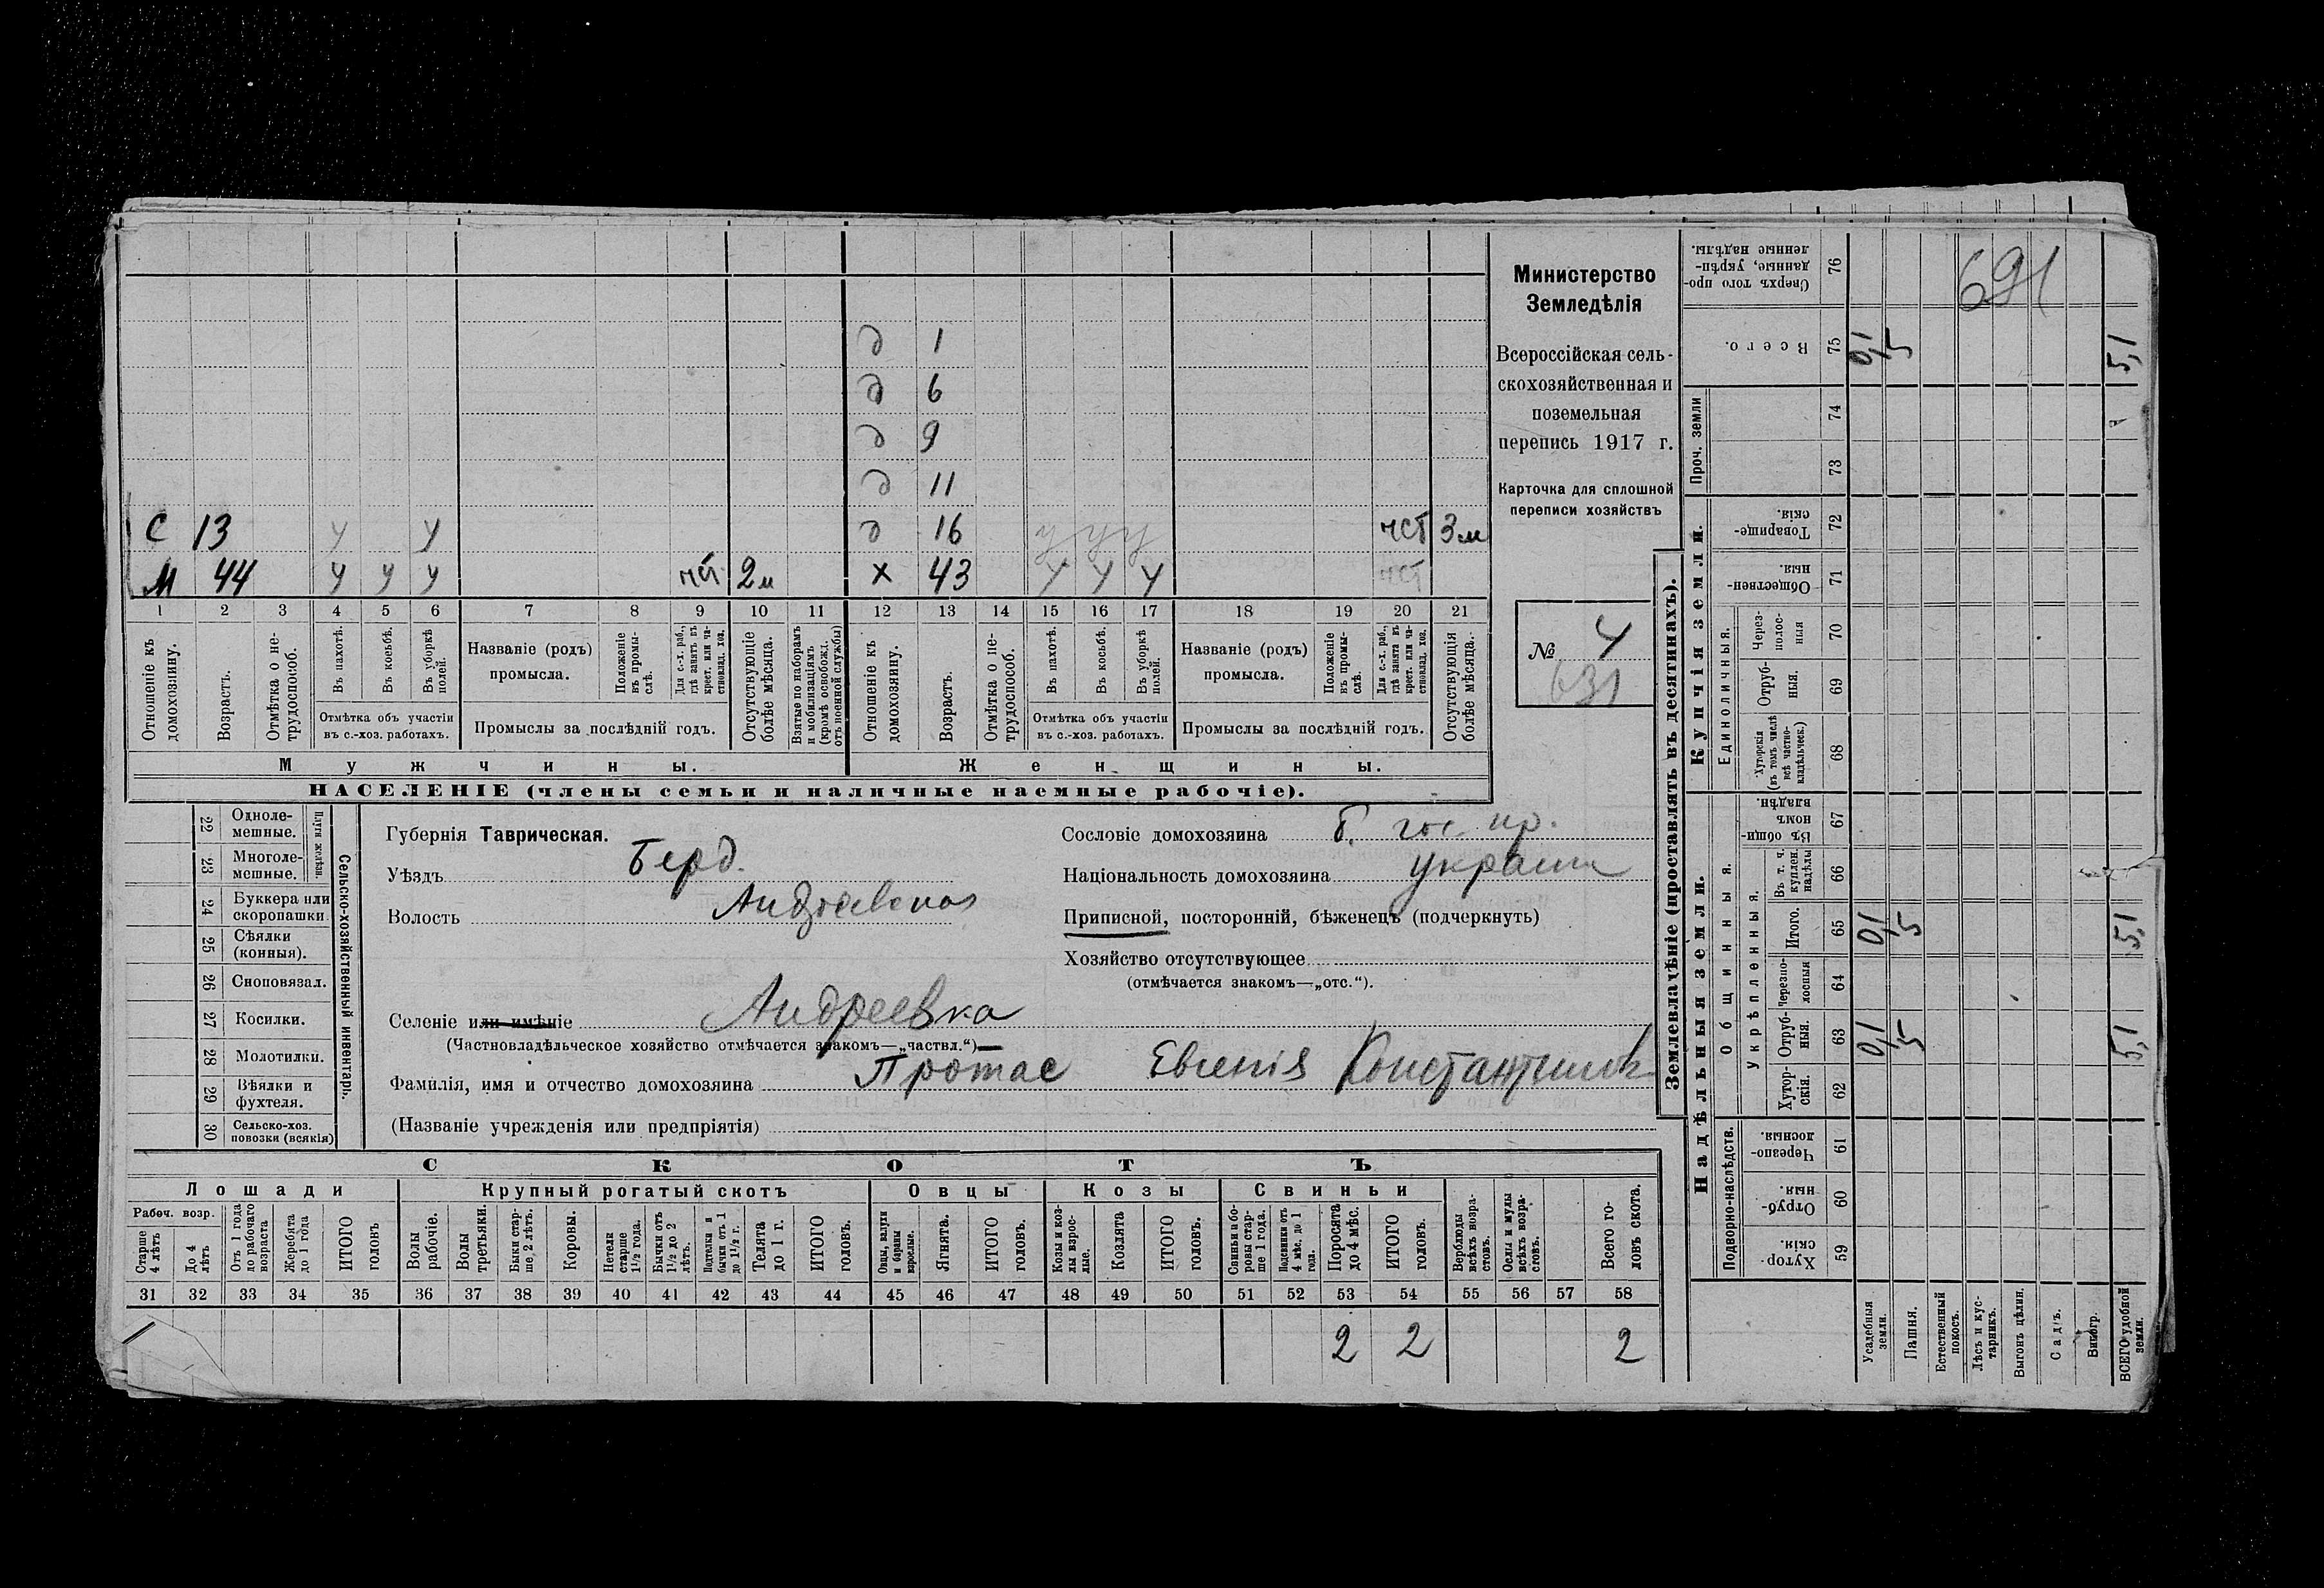 д 1
д 6
д 9
д 11
С 13 у у д 16 у у у чст 3м
М 44 у у у чст 2м х 43 у у у чст
1 2 3 4 5 6 7 8 9 10 11 12 13 14 15 16 17 18 19 20 21
Отношеніе къ домохозяину.
Возрастъ.
Отмѣтка о нетрудоспособ.
Въ пахотѣ.
Въ косьбѣ.
Въ уборкѣ полей.
Отмѣтка объ участіи въ с.-хоз. работахъ.
Названіе (родъ) промысла.
Положеніе въ промыслѣ.
Для с.-х. раб., гдѣ занятъ въ крест. или частновлад. хоз.
Промыслы за послѣдній годъ.
Отсутствующіе болѣе мѣсяца.
Взятые по наборамъ и мобилизаціямъ (кромѣ освобожд. отъ военной службы)
Отношеніе къ домохозяину.
Возрастъ.
Отмѣтка о нетрудоспособ.
Въ пахотѣ.
Въ косьбѣ.
Въ уборкѣ полей.
Отмѣтка объ участіи въ с.-хоз. работахъ.
Названіе (родъ) промысла.
Положеніе въ промыслѣ.
Для с.-х. раб., гдѣ занята въ крест. или частновлад. хоз.
Промыслы за послѣдній годъ.
Отсутствующія болѣе мѣсяца.
Мужчины. Женщины.
НАСЕЛЕНІЕ (члены семьи и наличные наемные рабочіе).
Министерство
Земледѣлія
Всероссійская сель-
скохозяйственная и
поземельная
перепись 1917 г.
Карточка для сплошной
переписи хозяйствъ
№ 4
631
22 Одноле-
мешные.
23 Многоле-
мешные.
Плуги желѣзн.
24 Буккера или
скоропашки
25 Сѣялки
(конныя).
26 Сноповязал.
27 Косилки.
28 Молотилки.
29 Вѣялки и
фухтеля.
30 Сельско-хоз.
повозки (всякія)
Сельско-хозяйственный инвентарь.
Губернія Таврическая.
Уѣздъ Берд.
Волость
Селеніе или имѣніе Андреевка
(Частновладѣльческое хозяйство отмѣчается знакомъ—„частвл.“)
Фамилія, имя и отчество домохозяина Протас Евгенія
(Названіе учрежденія или предпріятія)
Сословіе домохозяина б. гос. кр.
Національность домохозяина
Приписной, посторонній, бѣженецъ (подчеркнуть)
Хозяйство отсутствующее
(отмѣчается знакомъ—„отс.“).
СКОТЪ
Лошади Крупный рогатый скотъ Овцы Козы Свиньи
Рабоч. возр.
Старше 4 лѣтъ
До 4 лѣтъ
Отъ 1 года до рабочаго возраста
Жеребята до 1 года
ИТОГО головъ
Волы рабочіе.
Волы третьяки.
Быки старше 2 лѣтъ.
Коровы.
Нетели старше 1½ года.
Бычки отъ 1½ до 2 лѣтъ.
Подтелки и бычки отъ 1 до 1½ г.
Телята до 1 г.
ИТОГО головъ.
Овцы, валухи и бараны взрослые.
Ягнята.
ИТОГО головъ.
Козы и козлы взрослые.
Козлята
ИТОГО головъ.
Свиньи и боровы старше 1 года.
Подсвинки отъ 4 мѣс. до 1 года.
Поросята до 4 мѣс.
ИТОГО головъ.
Верблюды всѣхъ возрастовъ.
Ослы и мулы всѣхъ возрастовъ.
Всего головъ скота.
31 32 33 34 35 36 37 38 39 40 41 42 43 44 45 46 47 48 49 50 51 52 53 54 55 56 57 58
2 2 2
Землевладѣніе (проставлять въ десятинахъ).
Купчія земли.
Надѣльныя земли.
Сверхъ того проданные, укрѣпленные надѣлы. 76
691
Всего. 75 0,1 5 5,1
Проч. земли 74
73
Товарищескія. 72
Общественныя. 71
Единоличныя.
Черезполосныя 70
Отрубныя. 69
Хуторскія (въ томъ числѣ всѣ частновладѣльческ.) 68
Общинныя.
Въ общинномъ владѣн. 67
Укрѣпленныя.
Въ т. ч. куплен. надѣлы 66
Итого. 65 0,1 5 5,1
Черезполосныя 64
Отрубныя. 63 0,1 5 5,1
Хуторскія. 62
Подворно-наслѣдств.
Черезполосныя. 61
Отрубныя. 60
Хуторскія. 59
Усадебныя земли.
Пашня.
Естественный покосъ.
Лѣсъ и кустарникъ.
Выгонъ цѣлин.
Садъ.
Виногр.
ВСЕГО удобной земли.